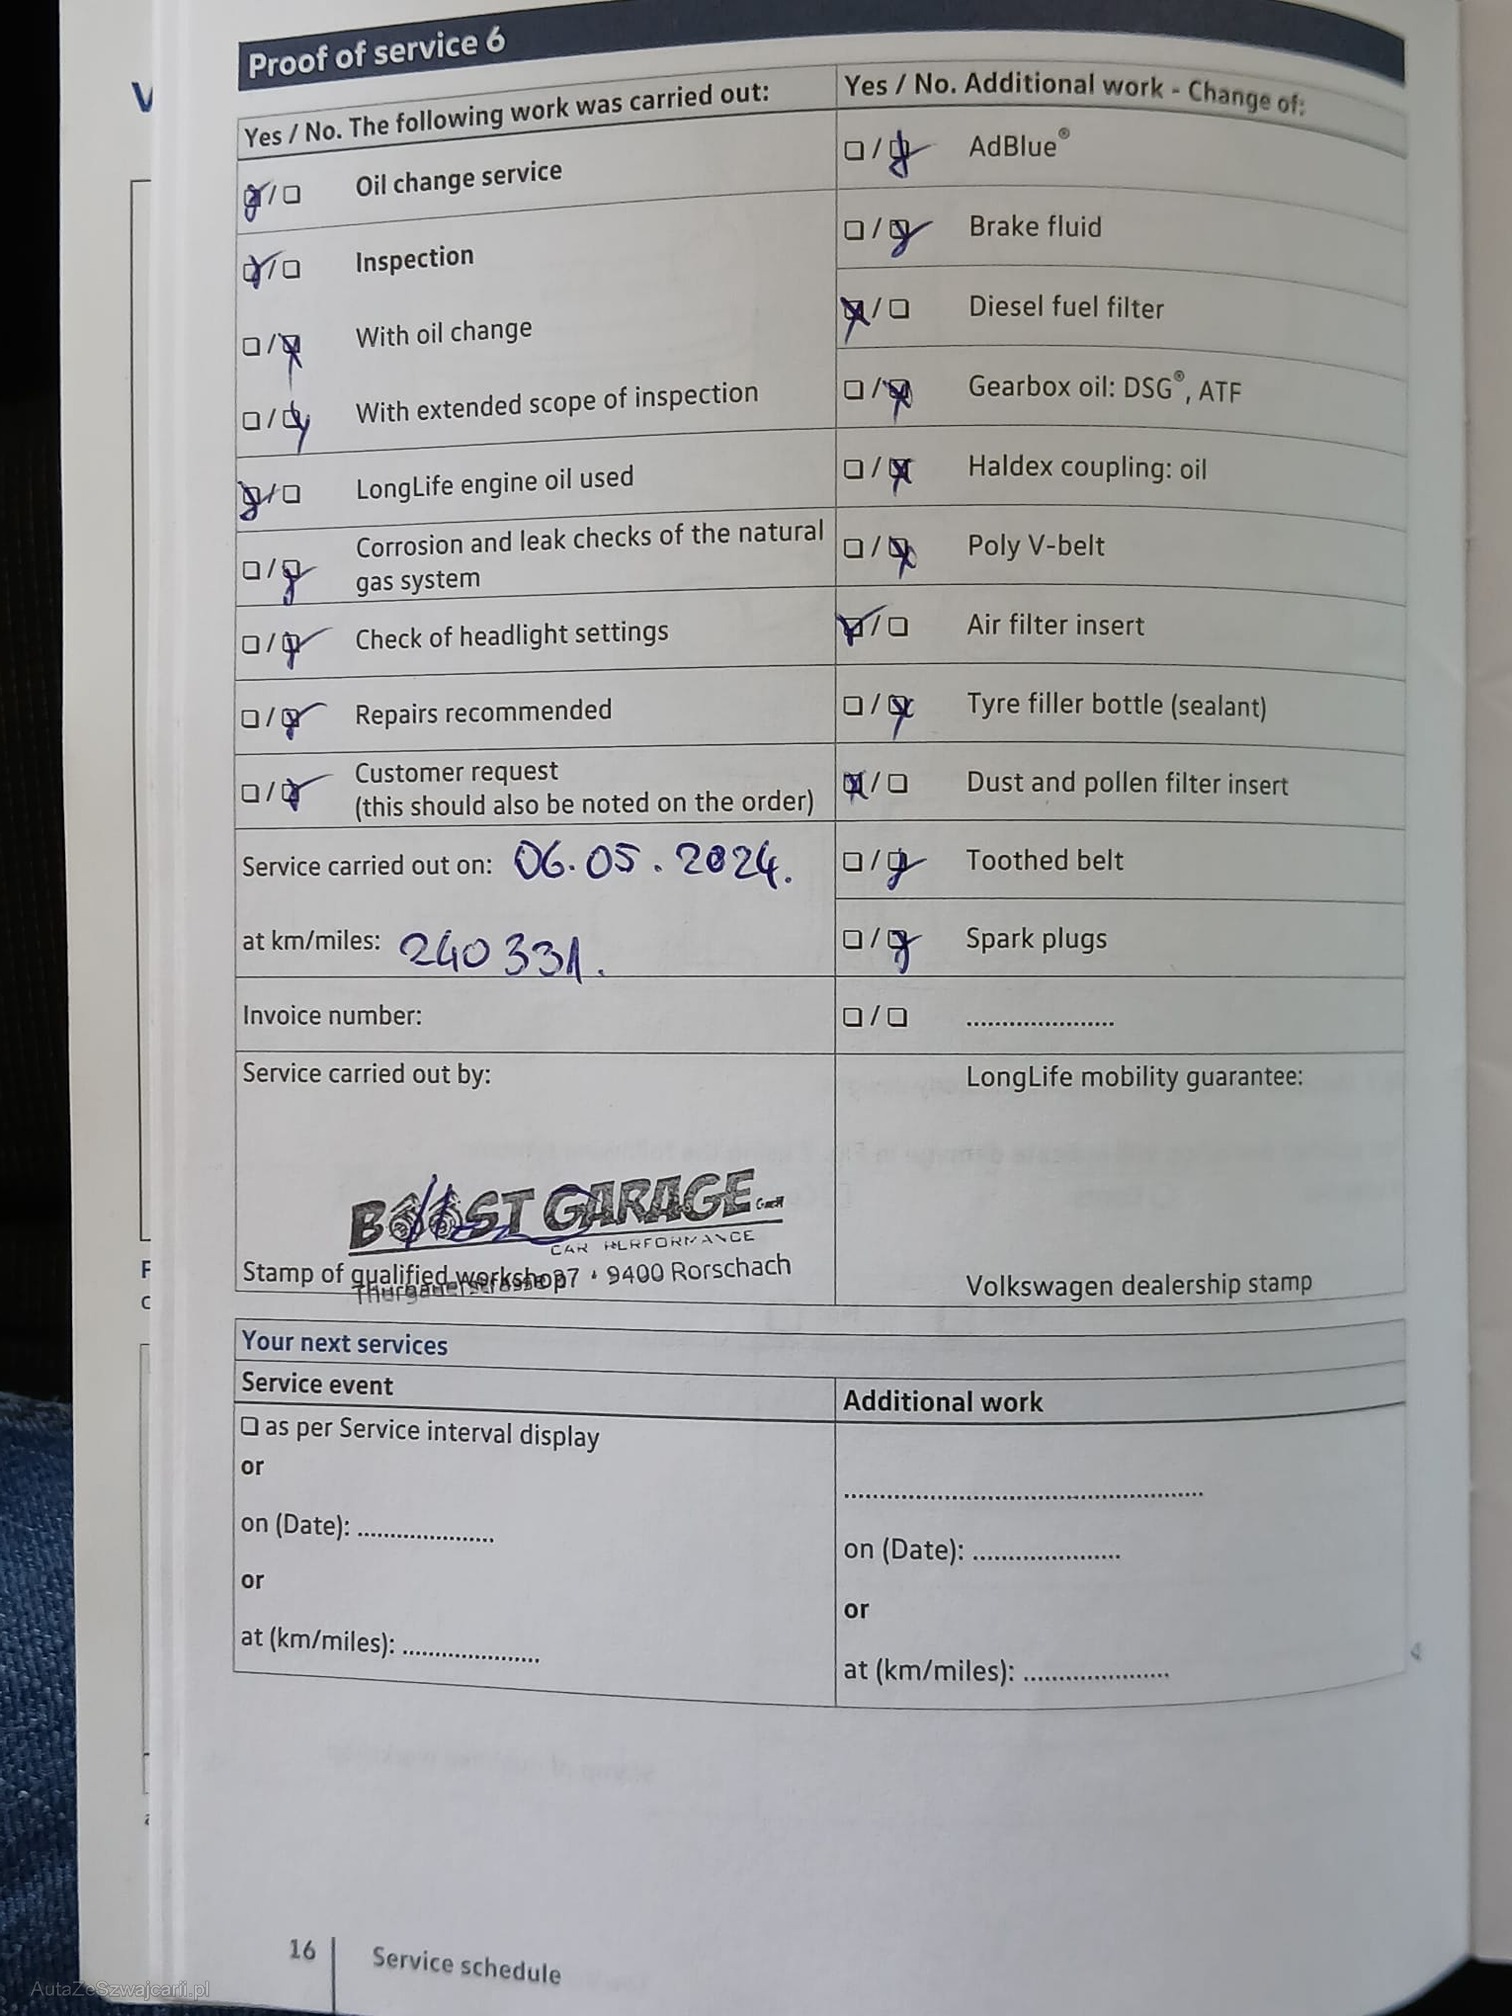 Proof of service 6
Yes / No. The following work was carried out:
☒ / ☐ Oil change service
☒ / ☐ Inspection
☐ / ☒ With oil change
☐ / ☒ With extended scope of inspection
☒ / ☐ LongLife engine oil used
☐ / ☒ Corrosion and leak checks of the natural
gas system
☐ / ☒ Check of headlight settings
☐ / ☒ Repairs recommended
☐ / ☒ Customer request
(this should also be noted on the order)
Service carried out on: 06.05.2024.
at km/miles: 240 331.
Invoice number:
Service carried out by:
BOOST GARAGE GmbH
CAR PERFORMANCE
Stamp of qualified workshop
Thurgauerstrasse 37 · 9400 Rorschach
Yes / No. Additional work - Change of:
☐ / ☒ AdBlue®
☐ / ☒ Brake fluid
☒ / ☐ Diesel fuel filter
☐ / ☒ Gearbox oil: DSG®, ATF
☐ / ☒ Haldex coupling: oil
☐ / ☒ Poly V-belt
☒ / ☐ Air filter insert
☐ / ☒ Tyre filler bottle (sealant)
☒ / ☐ Dust and pollen filter insert
☐ / ☒ Toothed belt
☐ / ☒ Spark plugs
☐ / ☐ ......................
LongLife mobility guarantee:
Volkswagen dealership stamp
Your next services
Service event
☐ as per Service interval display
or
on (Date): .....................
or
at (km/miles): .....................
Additional work
.......................................................
on (Date): ......................
or
at (km/miles): ......................
16 Service schedule
AutaZeSzwajcarii.pl